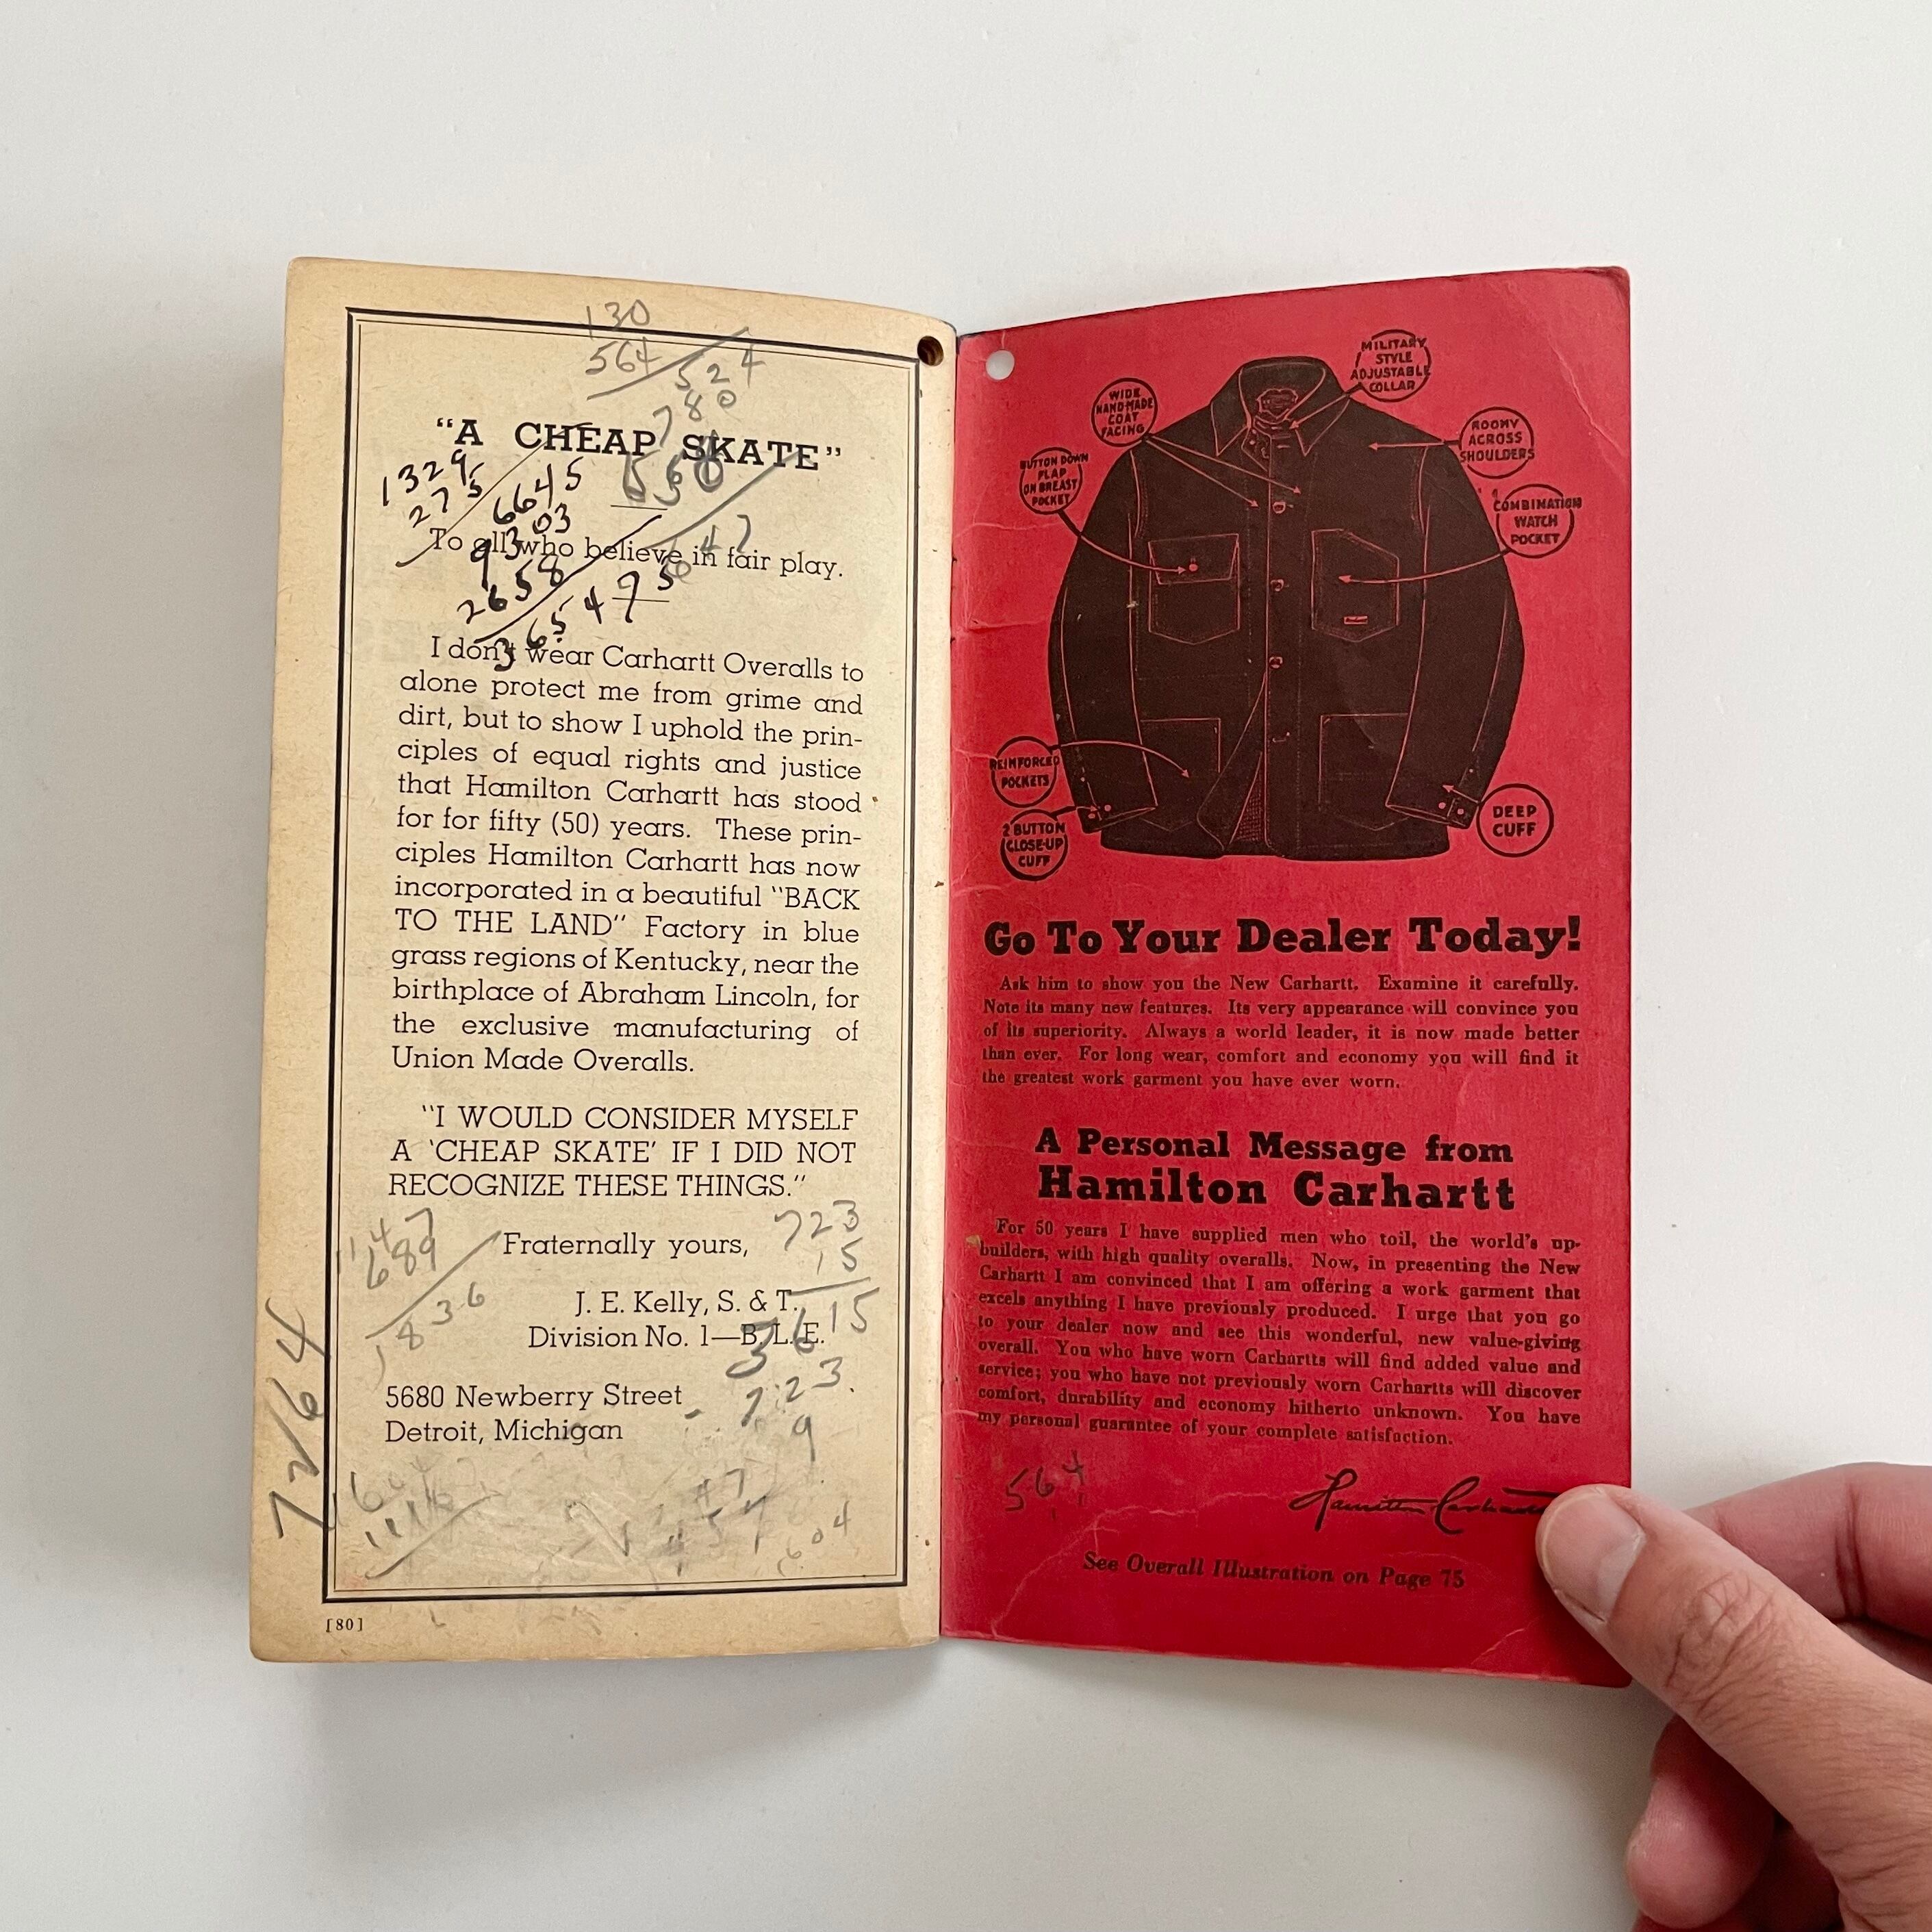 130
564
524
780
"A CHEAP SKATE"
1329
275
6645
9303
2658
365475
To all who believe in fair play.
I don't wear Carhartt Overalls to
alone protect me from grime and
dirt, but to show I uphold the prin-
ciples of equal rights and justice
that Hamilton Carhartt has stood
for for fifty (50) years. These prin-
ciples Hamilton Carhartt has now
incorporated in a beautiful "BACK
TO THE LAND" Factory in blue
grass regions of Kentucky, near the
birthplace of Abraham Lincoln, for
the exclusive manufacturing of
Union Made Overalls.
"I WOULD CONSIDER MYSELF
A 'CHEAP SKATE' IF I DID NOT
RECOGNIZE THESE THINGS."
Fraternally yours,
J. E. Kelly, S. & T.
Division No. 1—B. L. E.
5680 Newberry Street
Detroit, Michigan
723
15
3615
723
9
689
1836
7264
604
[80]
MILITARY
STYLE
ADJUSTABLE
COLLAR
WIDE
HAND-MADE
COAT
FACING
ROOMY
ACROSS
SHOULDERS
BUTTON DOWN
FLAP
ON BREAST
POCKET
COMBINATION
WATCH
POCKET
REINFORCED
POCKETS
2 BUTTON
CLOSE-UP
CUFF
DEEP
CUFF
Go To Your Dealer Today!
Ask him to show you the New Carhartt. Examine it carefully.
Note its many new features. Its very appearance will convince you
of its superiority. Always a world leader, it is now made better
than ever. For long wear, comfort and economy you will find it
the greatest work garment you have ever worn.
A Personal Message from
Hamilton Carhartt
For 50 years I have supplied men who toil, the world's up-
builders, with high quality overalls. Now, in presenting the New
Carhartt I am convinced that I am offering a work garment that
excels anything I have previously produced. I urge that you go
to your dealer now and see this wonderful, new value-giving
overall. You who have worn Carhartts will find added value and
service; you who have not previously worn Carhartts will discover
comfort, durability and economy hitherto unknown. You have
my personal guarantee of your complete satisfaction.
564
Hamilton Carhartt
See Overall Illustration on Page 75